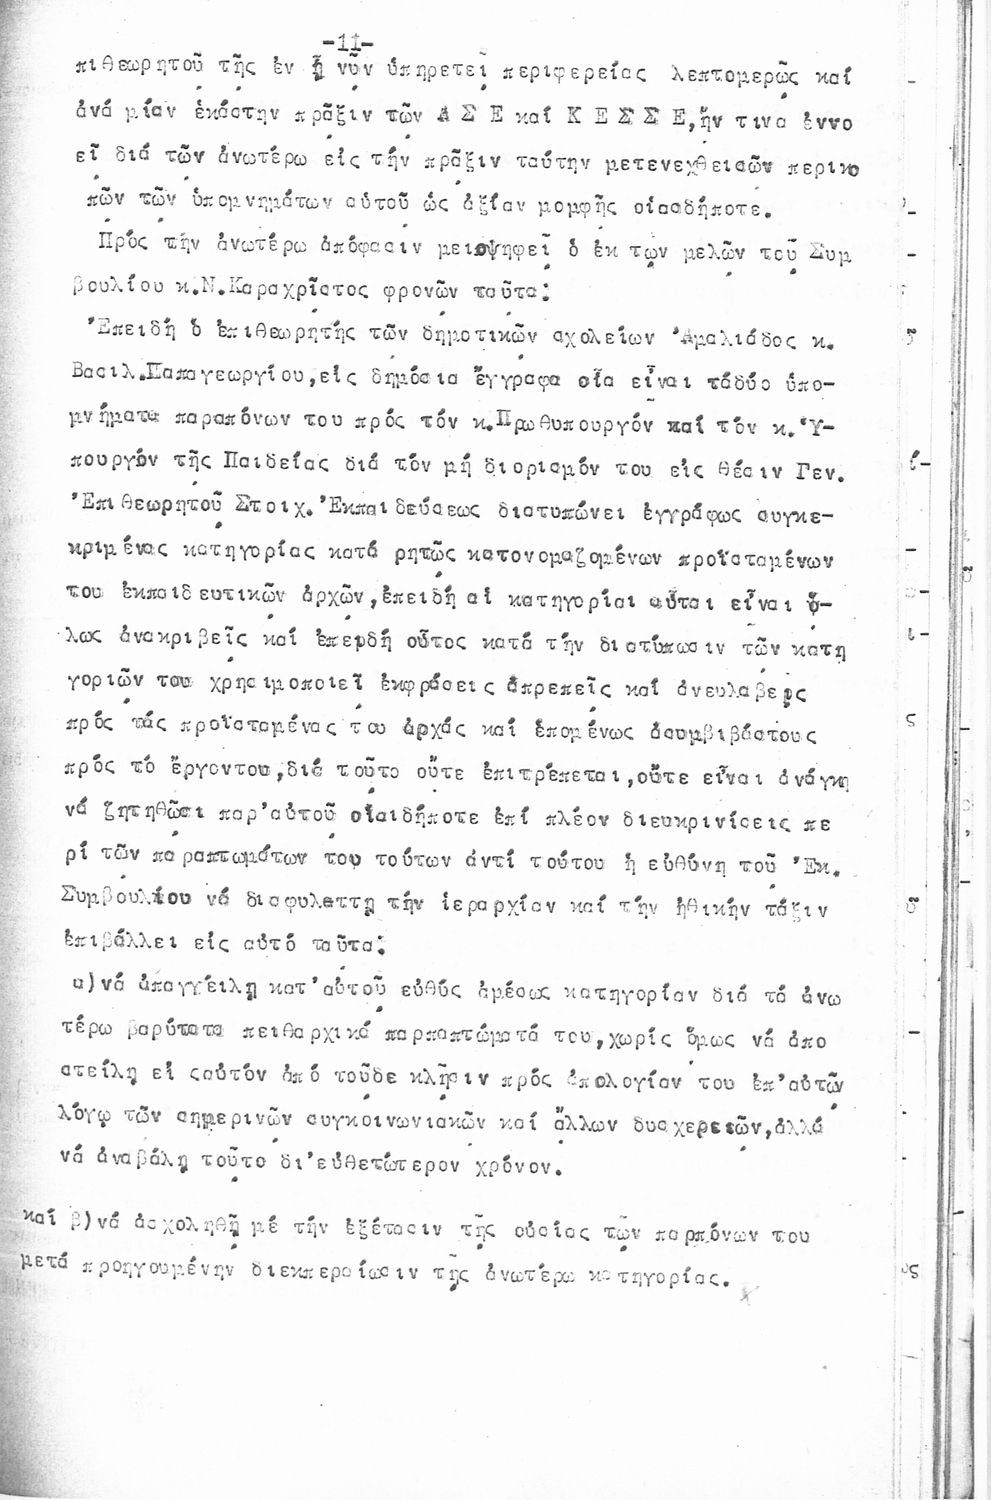 -11-
πιθεωρητοῦ τῆς ἐν ᾗ νῦν ὑπηρετεῖ περιφερείας λεπτομερῶς καί
ἀνά μίαν ἑκάστην πρᾶξιν τῶν Α Σ Ε καί Κ Ε Σ Σ Ε,ἥν τινα ἐννο
εῖ διά τῶν ἀνωτέρω εἰς τήν πρᾶξιν ταύτην μετενεχθεισῶν περικο
πῶν τῶν ὑπομνημάτων αὐτοῦ ὡς ἀξίαν μομφῆς οἱασδήποτε.
Πρός τήν ἀνωτέρω ἀπόφασιν μειοψηφεῖ ὁ ἐκ τῶν μελῶν τοῦ Συμ
βουλίου κ.Ν.Καραχρῖστος φρονῶν ταῦτα:
'Επειδή ὁ ἐπιθεωρητής τῶν δημοτικῶν σχολείων 'Αμαλιάδος κ.
Βασιλ.Παπαγεωργίου,εἰς δημόσια ἔγγραφα οἷα εἶναι τάδύο ὑπο-
μνήματα παραπόνων του πρός τόν κ.Πρωθυπουργόν καί τόν κ.'Υ-
πουργόν τῆς Παιδείας διά τόν μή διορισμόν του εἰς θέσιν Γεν.
'Επιθεωρητοῦ Στοιχ.'Εκπαιδεύσεως διατυπώνει ἐγγράφως συγκε-
κριμένας κατηγορίας κατά ρητῶς κατονομαζομένων προϊσταμένων
του ἐκπαιδευτικῶν ἀρχῶν,ἐπειδή αἱ κατηγορίαι αὗται εἶναι ὅ-
λως ἀνακριβεῖς καί ἐπειδή οὗτος κατά τήν διατύπωσιν τῶν κατη
γοριῶν του χρησιμοποιεῖ ἐκφράσεις ἀπρεπεῖς καί ἀνευλαβεῖς
πρός τάς προϊσταμένας του ἀρχάς καί ἑπομένως ἀσυμβιβάστους
πρός τό ἔργοντου,διά τοῦτο οὔτε ἐπιτρέπεται,οὔτε εἶναι ἀνάγκη
νά ζητηθῶσι παρ'αὐτοῦ οἱαιδήποτε ἐπί πλέον διευκρινίσεις πε
ρί τῶν παραπτωμάτων του τούτων ἀντί τούτου ἡ εὐθύνη τοῦ 'Εκ.
Συμβουλίου νά διαφυλαττῃ τήν ἱεραρχίαν καί τήν ἠθικήν τάξιν
ἐπιβάλλει εἰς αὐτό ταῦτα:
α)νά ἀπαγγείλῃ κατ'αὐτοῦ εὐθύς ἀμέσως κατηγορίαν διά τά ἀνω
τέρω βαρύτατα πειθαρχικά παρπαπτώματά του,χωρίς ὅμως νά ἀπο
στείλῃ εἰ ςαὐτόν ἀπό τοῦδε κλῆσιν πρός ἀπολογίαν του ἐπ'αὐτῶν
λόγῳ τῶν σημερινῶν συγκοινωνιακῶν καί ἄλλων δυσχερειῶν,ἀλλά
νά ἀναβάλῃ τοῦτο δι'εὐθετώτερον χρόνον.
καί β)νά ἀσχοληθῇ μέ τήν ἐξέτασιν τῆς οὐσίας τῶν παρπόνων του
μετά προηγουμένην διεκπεραίωσιν τῆς ἀνωτέρω κατηγορίας.